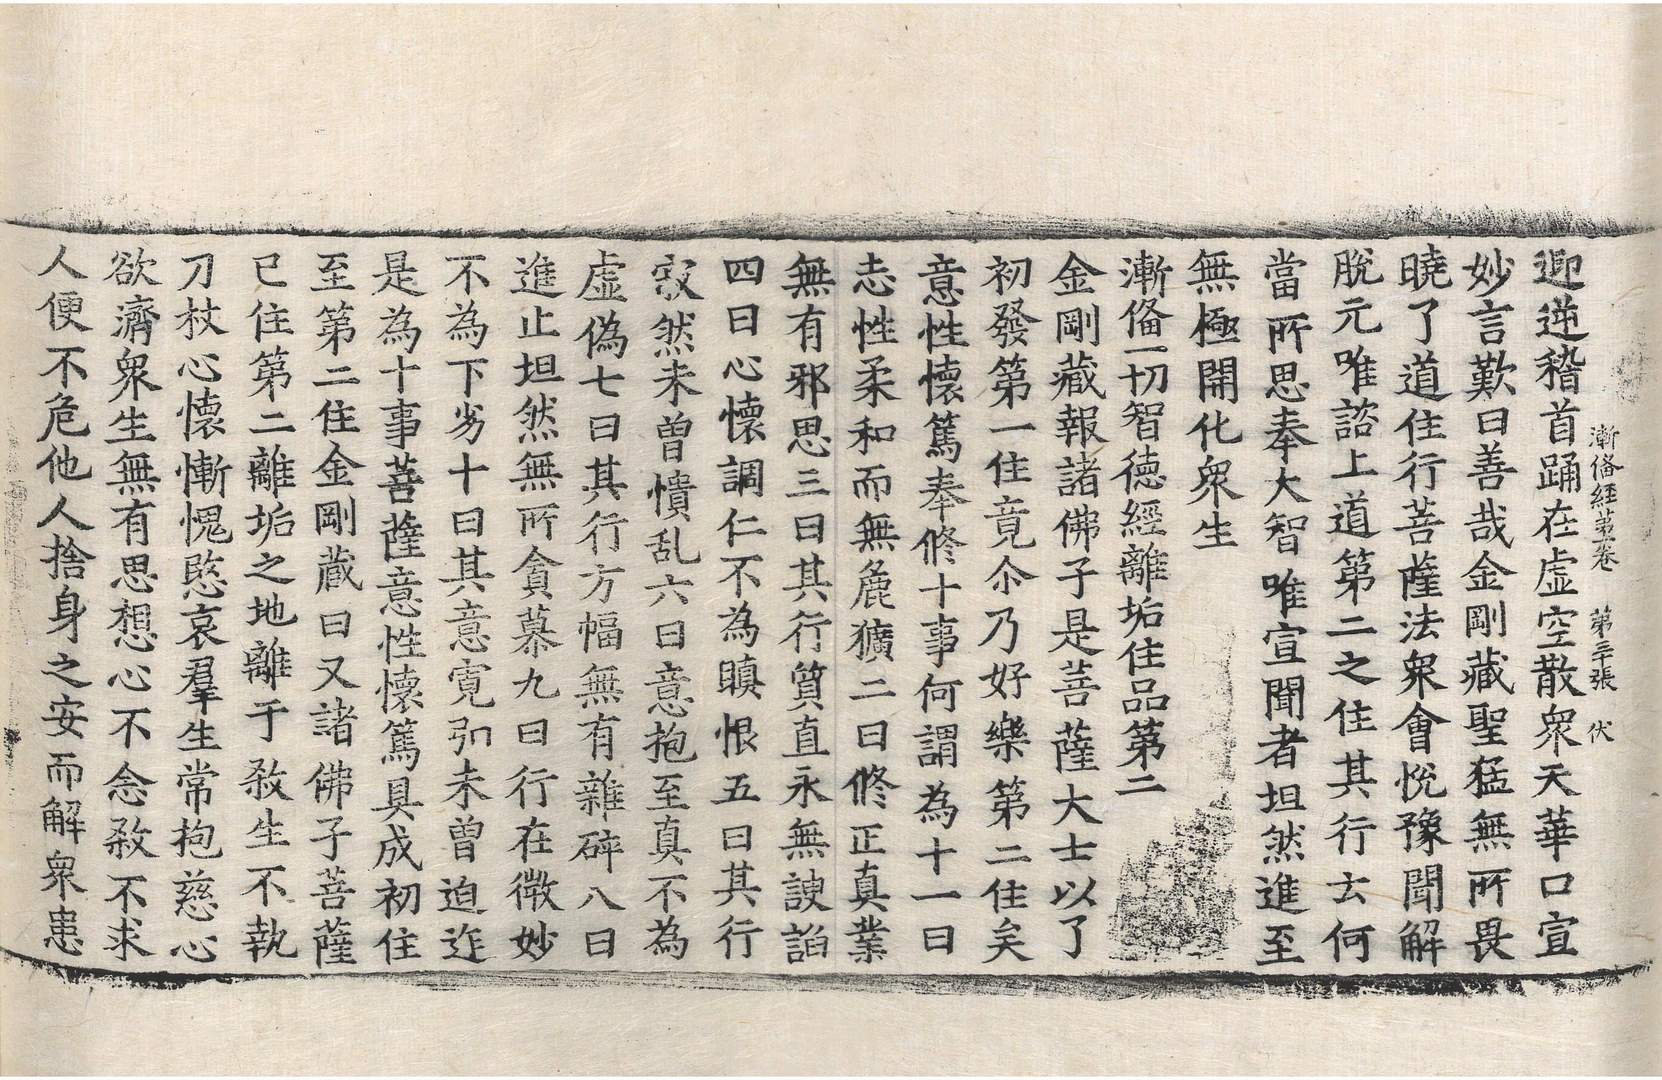 漸俻經第一卷 第三十張 伏
迎逆稽首踊在虛空散衆天華口宣
妙言歎曰善哉金剛藏聖猛無所畏
曉了道住行菩薩法衆會悅豫聞解
脫元唯諮上道第二之住其行去何
當所思奉大智唯宣聞者坦然進至
無極開化衆生
漸俻一切智德經離垢住品第二
金剛藏報諸佛子是菩薩大士以了
初發第一住竟尒乃好樂第二住矣
意性懷篤奉修十事何謂為十一曰
志性柔和而無麁獷二曰修正真業
無有邪思三曰其行質直永無諛諂
四曰心懷調仁不為瞋恨五曰其行
寂然未曾憒乱六曰意抱至真不為
虛偽七曰其行方幅無有雜碎八曰
進止坦然無所貪慕九曰行在微妙
不為下劣十曰其意寬弘未曾迫迮
是為十事菩薩意性懷篤具成初住
至第二住金剛藏曰又諸佛子菩薩
已住第二離垢之地離于煞生不執
刀杖心懷慚愧愍哀羣生常抱慈心
欲濟衆生無有思想心不念煞不求
人便不危他人捨身之安而解衆患